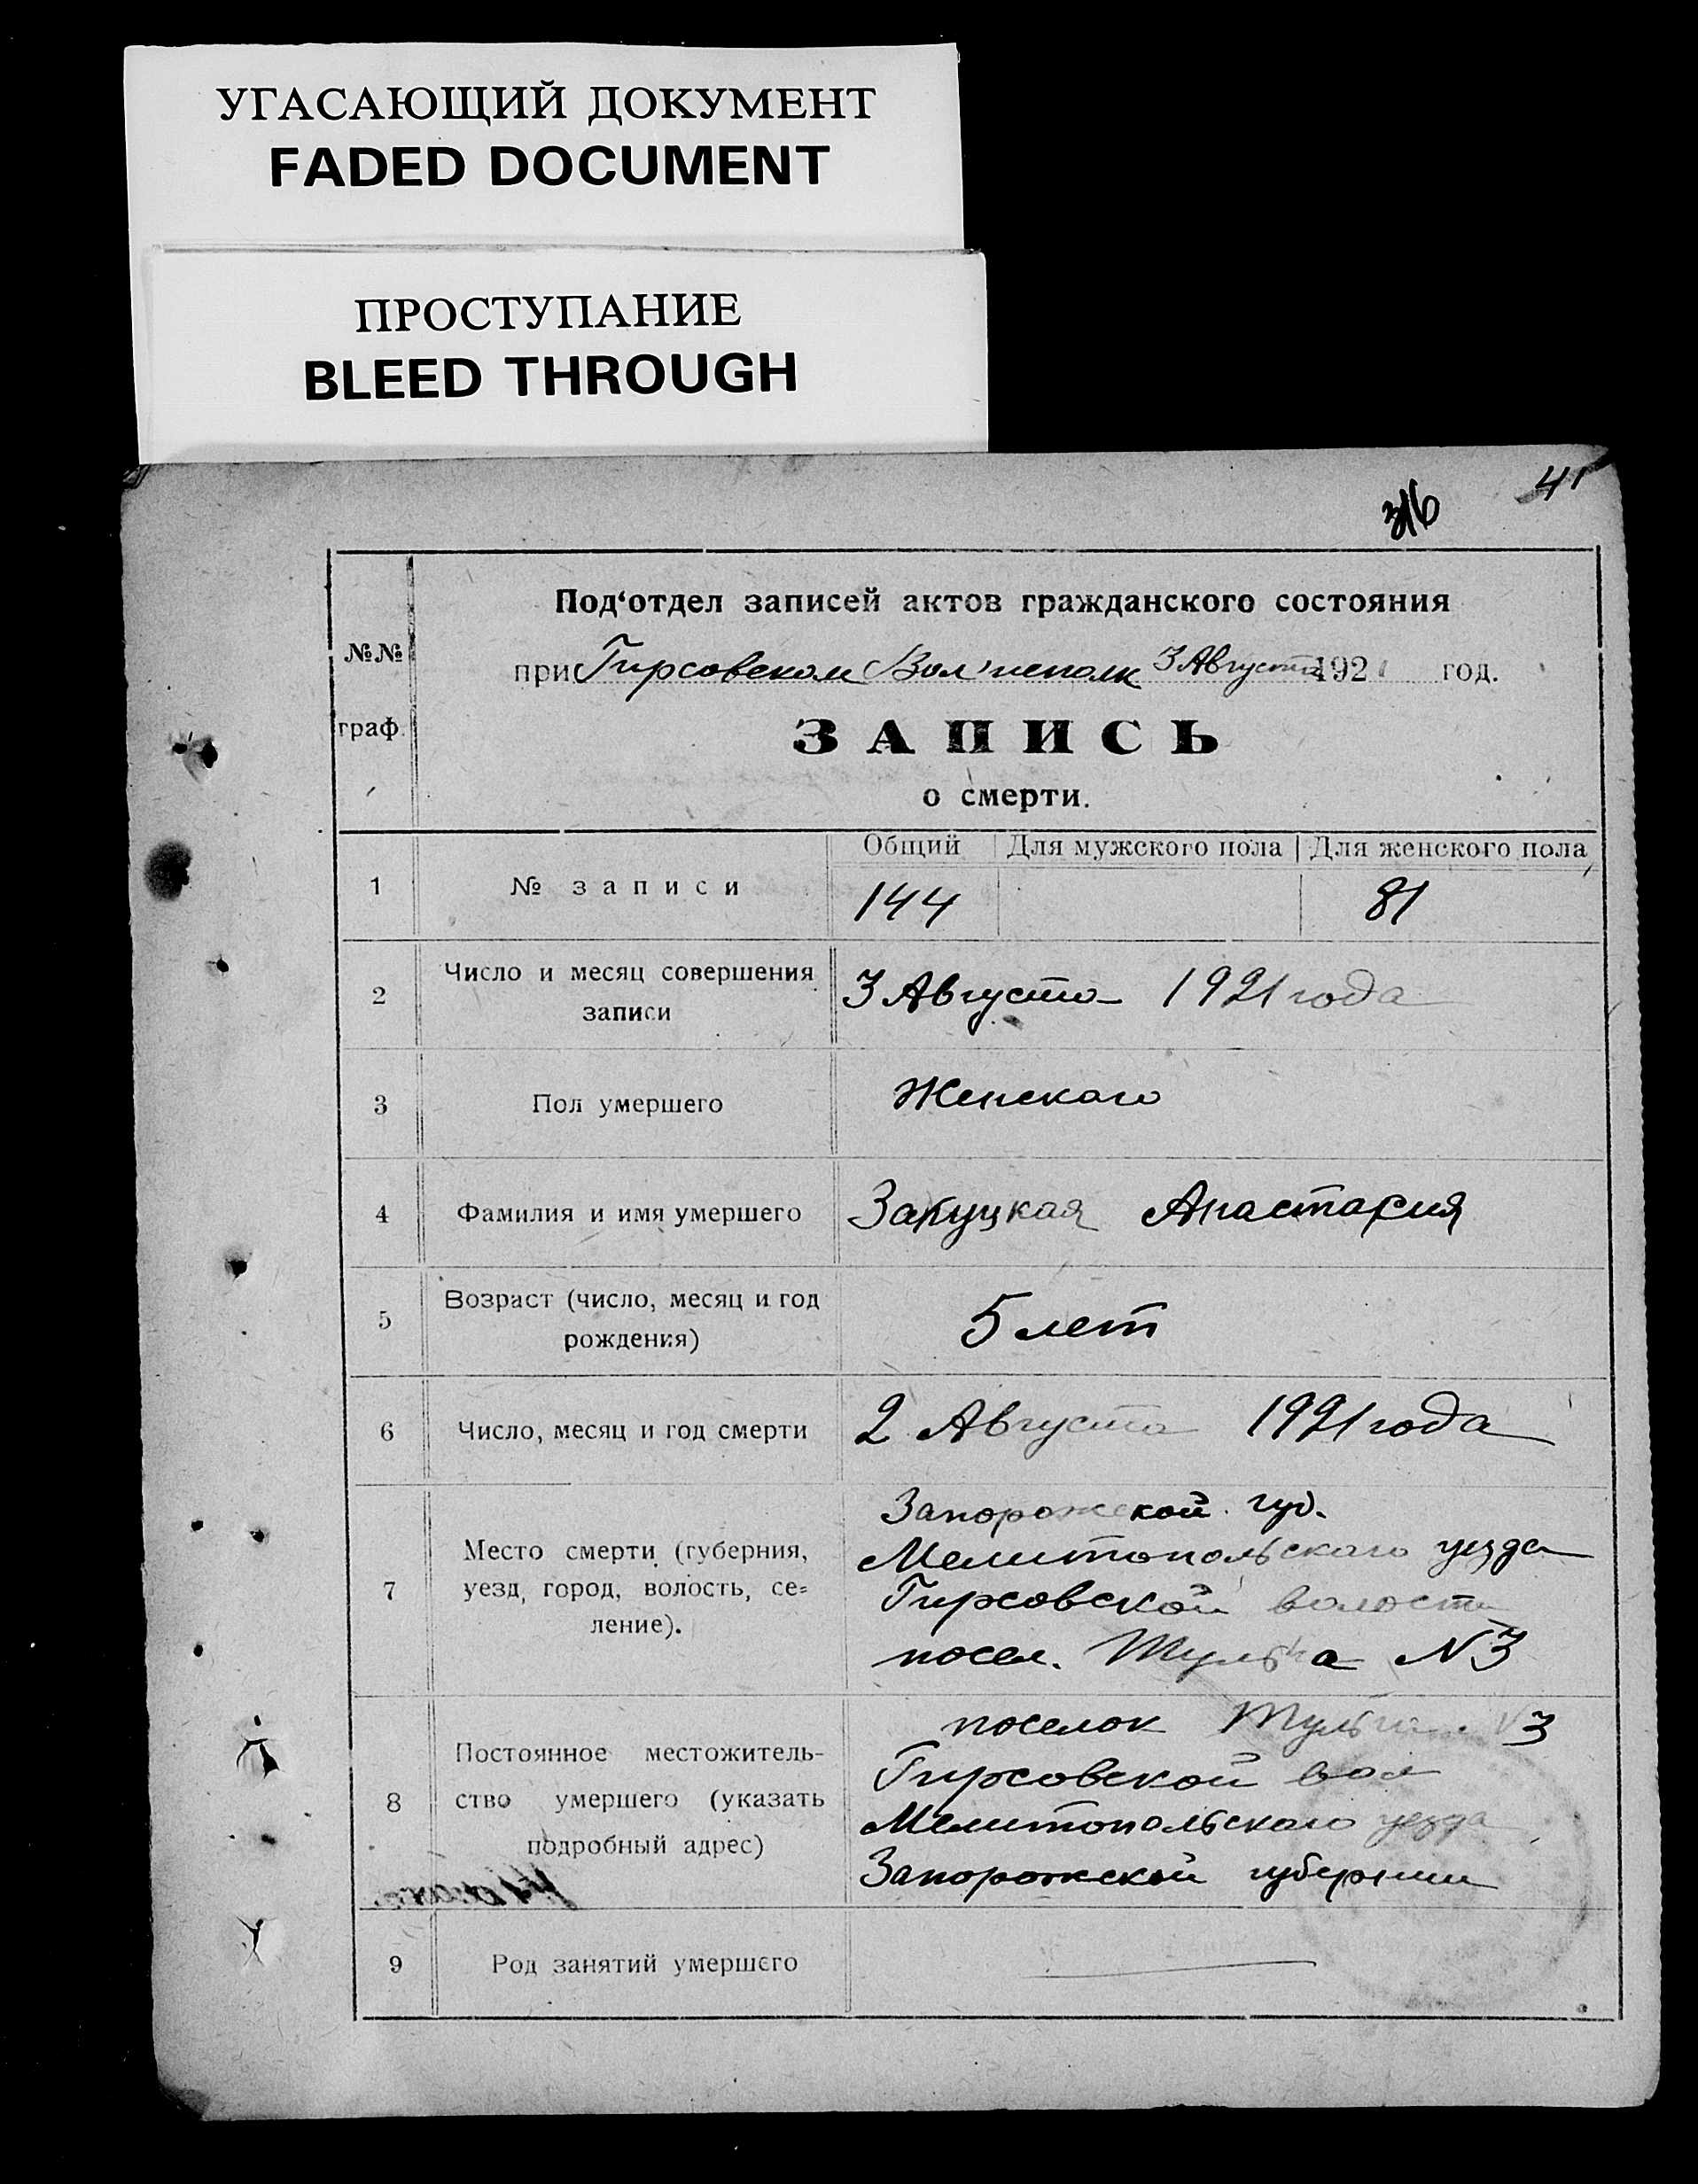 УГАСАЮЩИЙ ДОКУМЕНТ
FADED DOCUMENT
ПРОСТУПАНИЕ
BLEED THROUGH
41
316
№№ граф.
Под‘отдел записей актов гражданского состояния
при Гирсовском Вол'исполк 3 Августа 1921 год.
ЗАПИСЬ
о смерти.
Общий Для мужского пола Для женского пола
1 № записи 144 81
2 Число и месяц совершения
записи
3 Августа 1921 года
3 Пол умершего Женскаго
4 Фамилия и имя умершего Закуцкая Анастасия
5 Возраст (число, месяц и год
рождения)
5 лет
6 Число, месяц и год смерти 2 Августа 1921 года
7 Место смерти (губерния,
уезд, город, волость, се=
ление).
Запорожской губ.
Мелитопольскаго уезда
Гирсовской волости
посел. N3
8 Постоянное местожитель-
ство умершего (указать
подробный адрес)
поселок N3
Гирсовской вол
Мелитопольскаго уезда
Запорожской губернии
9 Род занятий умершего